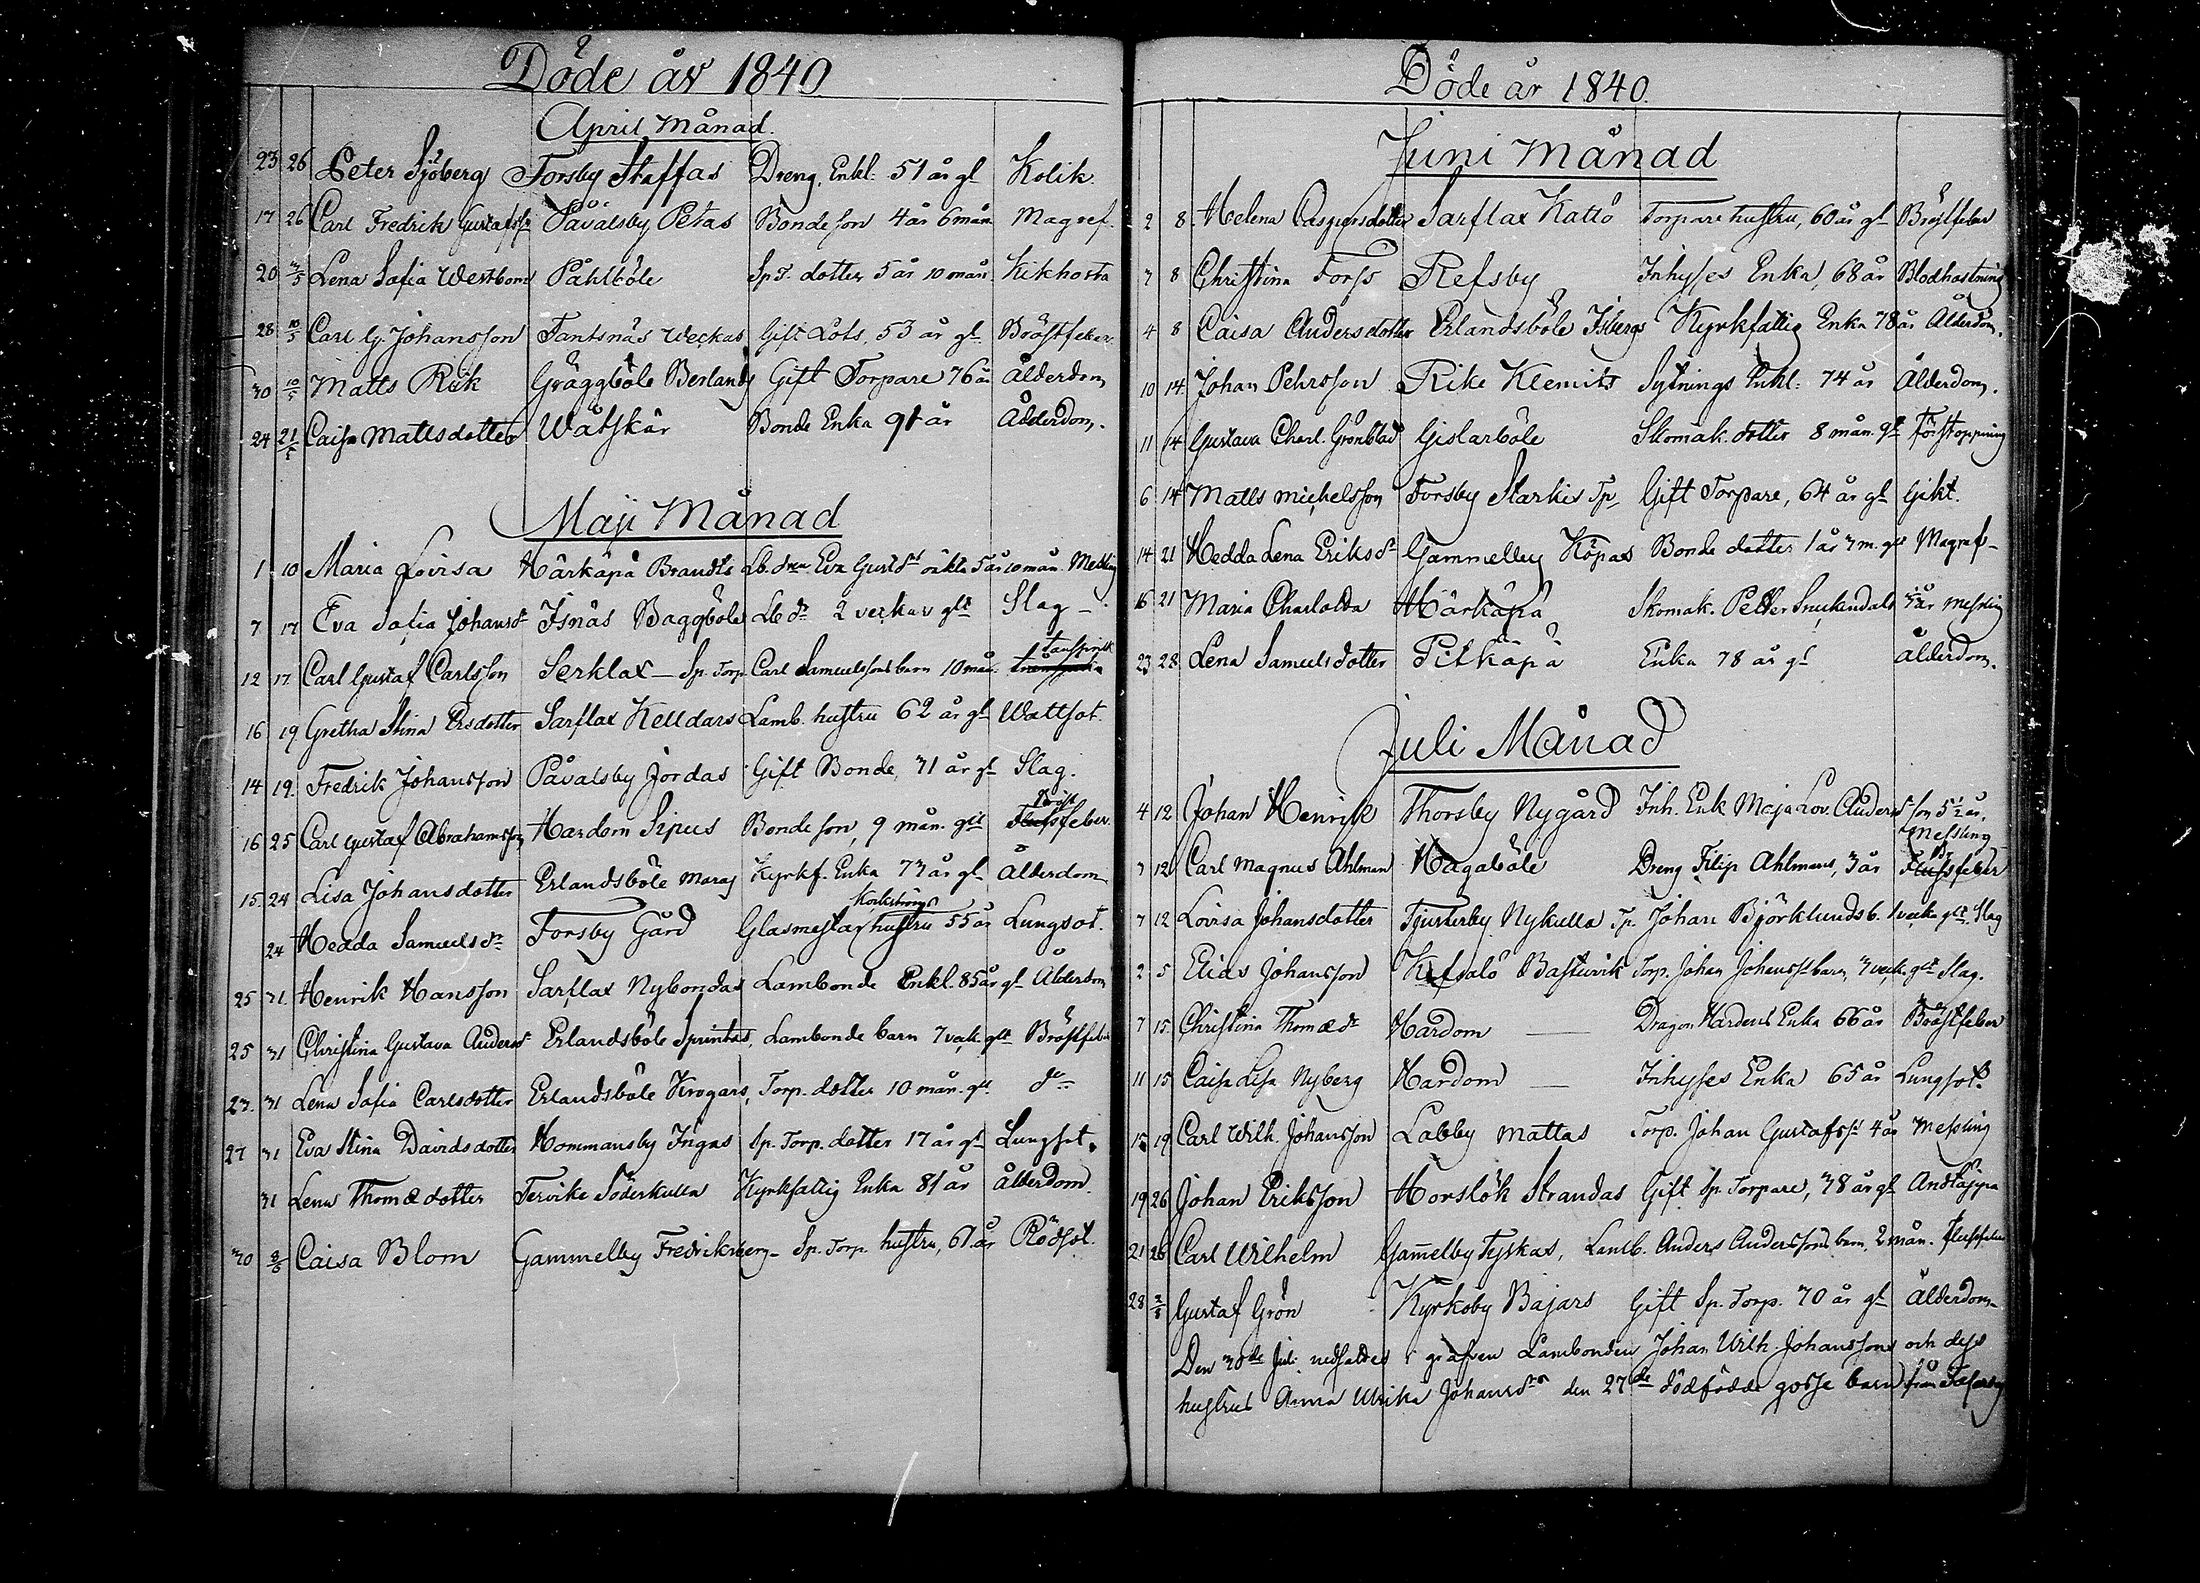 Döde år 1840
April Månad.
23 26 Peter Sjöberg Forsby Staffas Dreng. Enkl. 51 år gl Kolik.
17 26 Carl Fredrik Gustafss: Påvalsby Petas Bondeson 4 år 6 mån Magref.
20 3/5 Lena Sofia Westbom Påhlböle Sp. T. dotter 5 år 10 mån. Kikhosta
28 10/5 Carl G. Johansson Tantsnäs Weckas Gift Lots, 53 år gl. Bröstfeber.
30 10/5 Matts Rik Gräggböle Berlands Gift Torpare 76 år Ålderdom
24 21/5 Caisa Mattsdotter Wåtskär Bonde Enka 91 år Ålderdom.
Maji Månad
1 10 Maria Lovisa Härkäpä Brandts Lb. dra Eva Gustdr oäkta 5 år 10 mån. Messling
7 17 Eva Sofia Johansdr Isnäs Baggböle Lb dr 2 veckor glt Slag -
12 17 Carl Gustaf Carlsson Serklax - Sp. Torp. Carl Samuelssons barn 10 mån.
16 19 Gretha Stina Ersdotter Sarflax Kelldars Lamb. hustru 62 år gl Wattsot.
14 19. Fredrik Johansson Påvalsby Jordas Gift Bonde, 31 år gl Slag.
16 25 Carl Gustaf Abrahamsson Hardom Sipus Bondeson, 9 mån. glt Flussfeber
15 24 Lisa Johansdotter Erlandsböle Maras Kyrkf. Enka 73 år gl. Ålderdom
24 Hedda Samuelsdr Forsby Gård Glasmestar hustru 55 år Lungsot.
25 31. Henrik Hansson Sarflax Nybondas Lambonde Enkl. 85 år gl Ålderdom
25 31 Christina Gustava Andersdr Erlandsböle Sprintas, Lambonde barn 7 veck. glt Bröstfeber
23. 31 Lena Sofia Carlsdotter Erlandsböle Krogars, Torp. dotter 10 mån. gl. do
27 31 Eva Stina Davidsdotter Hommansby Ingas Sp. Torp. dotter 17 år gl Lungsot.
31 Lena Thomædotter Tervike Söderkulla Kyrkfattig Enka 81 år Ålderdom.
30 8/6 Caisa Blom Gammelby Fredriksberg - Sp. Torp. hustru, 61 år Rödsot.
Döde år 1840.
Juni Månad
2 8. Helena Caspersdotter Sarflax Kattö Torpare hustru, 60 år gl Bröstfeber
7 8 Christina Forss Refsby Inhyses Enka, 68 år Blodhostning
4 8 Caisa Andersdotter Erlandsböle Isbergs Kyrkfattig Enka 78 år Ålderdom.
10 14 Johan Pehrsson Rike Klemits Sytnings Enkl: 74 år Ålderdom.
11 14 Gustava Charl. Grönblad Gislarböle Skomak. dotter 8 mån. glt Förstoppning
6 14 Matts Michelsson Forsby Starkis Tp Gift Torpare, 64 år gl Gikt.
14 21 Hedda Lena Eriksdr Gammelby Köpas Bonde dotter 1 år 3 m. glt Magref-
16 21 Maria Charlotta Härkäpä Skomak. Petter Snickendals år Messling
23 28 Lena Samuelsdotter Pitkäpä Enka 78 år gl Ålderdom.
Juli Månad
4 12 Johan Henrik Thorsby Nygård Inh. Enk Maja Lov. Andersdr son 5½ år. Messling
3 12 Carl Magnus Ahlman Hagaböle Dreng Filip Ahlmans, 3 år Flussfeber
7 12 Lovisa Johansdotter Tjusterby Nykulla Tp. Johan Björklunds b. 1 veck glt. Slag
2 5 Elias Johansson Kefsalö Bastuvik Torp. Johan Johanss: barn, 3 veck. glt Slag.
7 15 Christina Thomædr Hardom — Dragon Hardens Enka 66 år Bröstfeber
11 15 Caisa Lisa Nyberg Hardom — Inhyses Enka 65 år Lungsot.
15 19 Carl Wilh. Johansson Labby Mattas Torp. Johan Gustafss: 4 år Messling
19 26 Johan Eriksson Horslök Strandas Gift Sp. Torpare, 38 år gl Andtäppa
21 26 Carl Wilhelm Gamelby Tyskas, Lamb. Anders Anderssons barn, 2 mån. flussfeber
28 2/8 Gustaf Grön Kyrkoby Bajars Gift Sp. Torp. 70 år gl Ålderdom-
Den 30de Juli nedsattes i grafven Lambonden Johan Wilh. Johanssons och dess
hustrus Anna Ulrika Johansdrs den 27de dödfödde gosse barn från